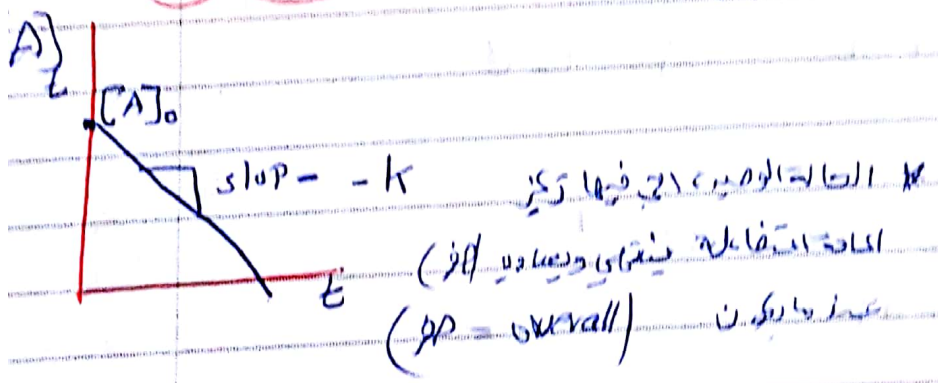 A]t
[A]₀
slop = - k
t
* الحالة الوحيدة الي فيها تركيز
المادة المتفاعلة ينتهي ويساوي
عندما يكون ( = overall)